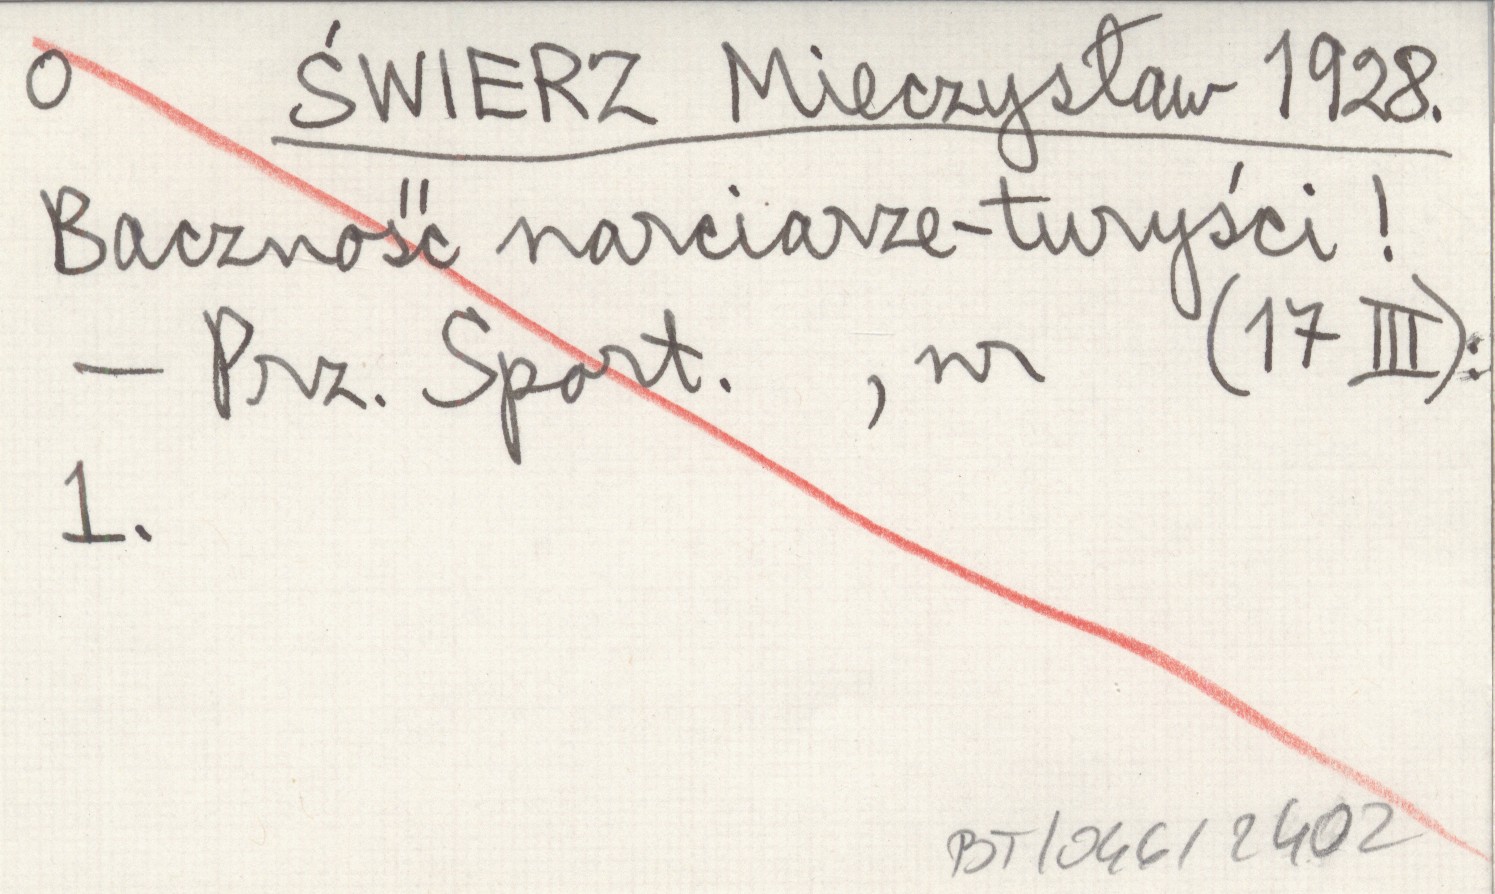 O ŚWIERZ Mieczysław 1928.
Baczność narciarze-turyści!
— Prz. Sport. , nr (17 III):
1.
BT/046/2402